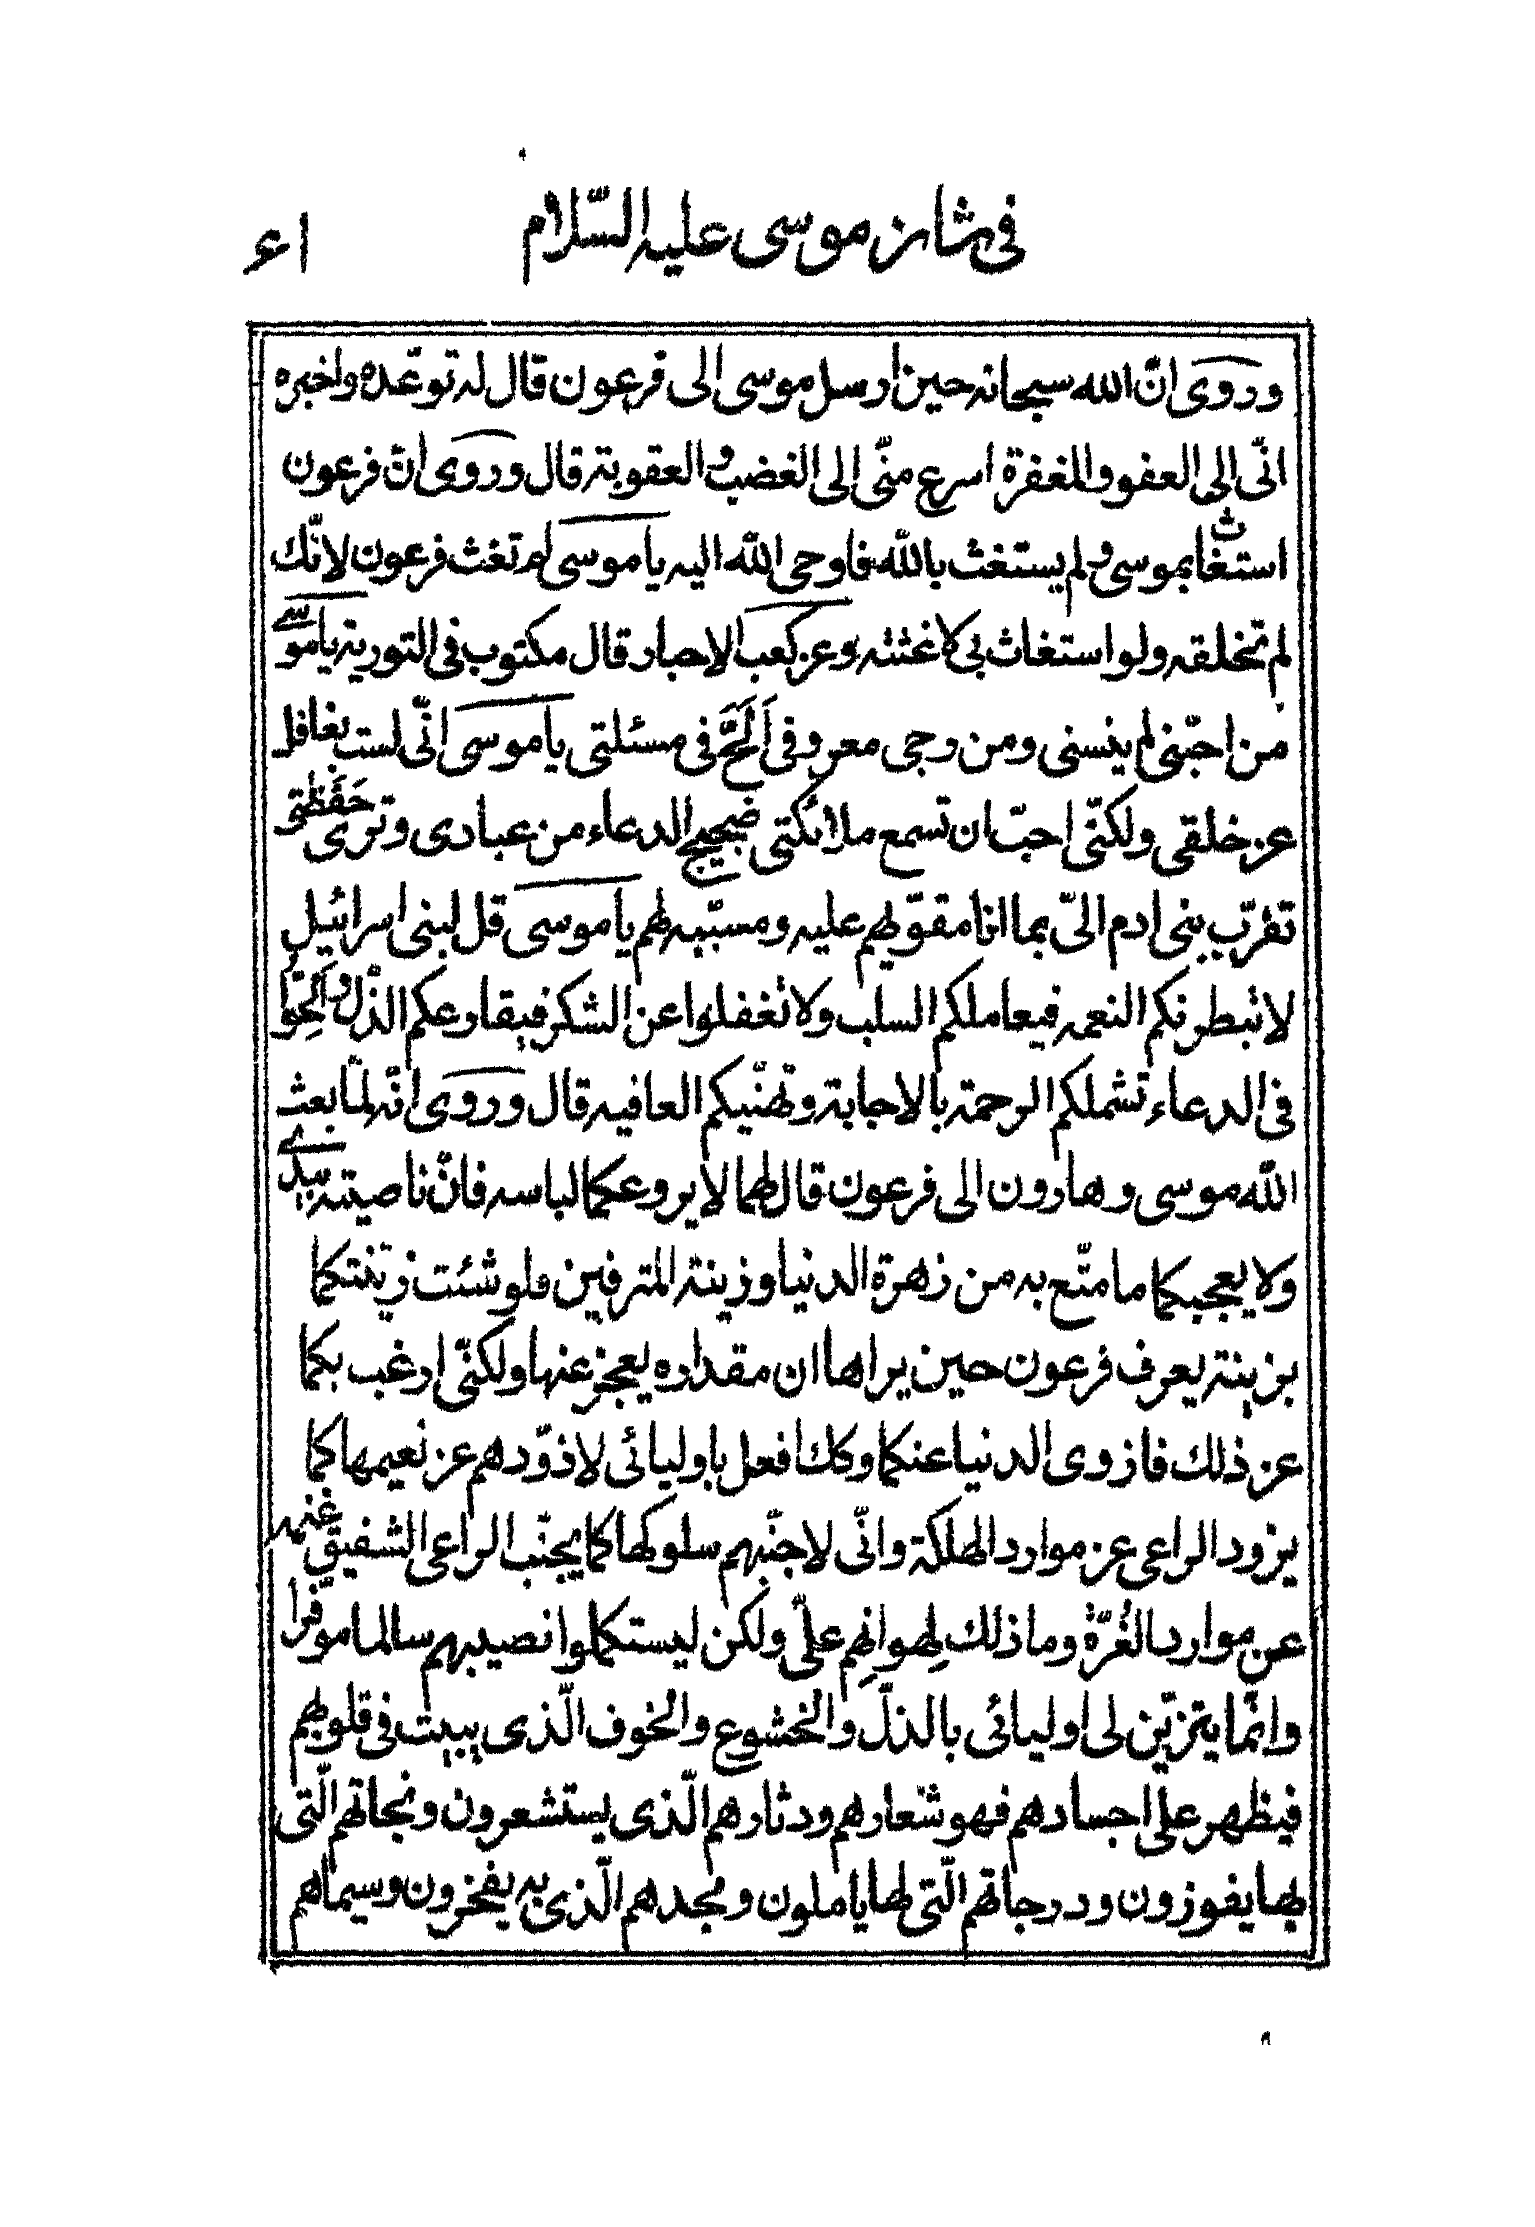 في شان موسى عليه السّلام
٤١
وروى انّ الله سبحانه حين ارسل موسى الى فرعون قال له توعّده واخبره
انّى الى العفو والمغفرة اسرع منّى الى الغضب والعقوبة قال وروى انّ فرعون
استغاث بموسى ولم يستغث بالله فاوحى الله اليه يا موسى لم تغث فرعون لانّك
لم تخلقه ولو استغاث بي لاغثته وعن كعب الاحبار قال مكتوب في التورية يا موسى
من احبّنى لم ينسنى ومن رجى معروفى اَلَحَّ في مسئلتى يا موسى انّى لست بغافل
عن خلقى ولكنّى احبّ ان تسمع ملائكتى ضجيج الدعاء من عبادى وترى حَفَظَتى
تقرّب بنى ادم الىّ بما انا مقوّيهم عليه ومسبّبه لهم يا موسى قل لبنى اسرائيل
لا تبطرنكم النعمه فيعاملكم السلب ولا تغفلوا عن الشكر فيقارعكم الذّل و اَلِحّوُا
في الدعاء تشملكم الرحمة بالاجابة وتهنّيكم العافيه قال وروى انّه لمّا بعث
الله موسى وهارون الى فرعون قال لهما لا يروعكما لباسه فانّ ناصيته بيدى
ولا يعجبكما ما متّع به من زهرة الدنيا وزينة المترفين ولو شئت زيّنتكما
بزينة يعرف فرعون حين يراها ان مقداره يعجز عنها ولكنّى ارغب بكما
عن ذلك فازوى الدنيا عنكما وكك افعل باوليائى لاذوّدهم عن نعيمها كما
يزود الراعى عن موارد الهلكة وانّى لاجنّبهم سلوكها كما يجنّب الراعى الشفيق غنمه
عن موارد الغُرّة وما ذلك لِهوانِهِم علىّ ولكن ليستكملوا نصيبهم سالما موفّرا
وانّما يتزيّن لى اوليائى بالذلّ والخشوع والخوف الّذى يبيت في قلوبهم
فيظهر على اجسادهم فهو شعارهم ودثارهم الّذى يستشعرون ونجاتهم الّتى
بها يفوزون ودرجاتهم الّتى لها ياملون ومجدهم الّذى به يفخرون وسيماهم